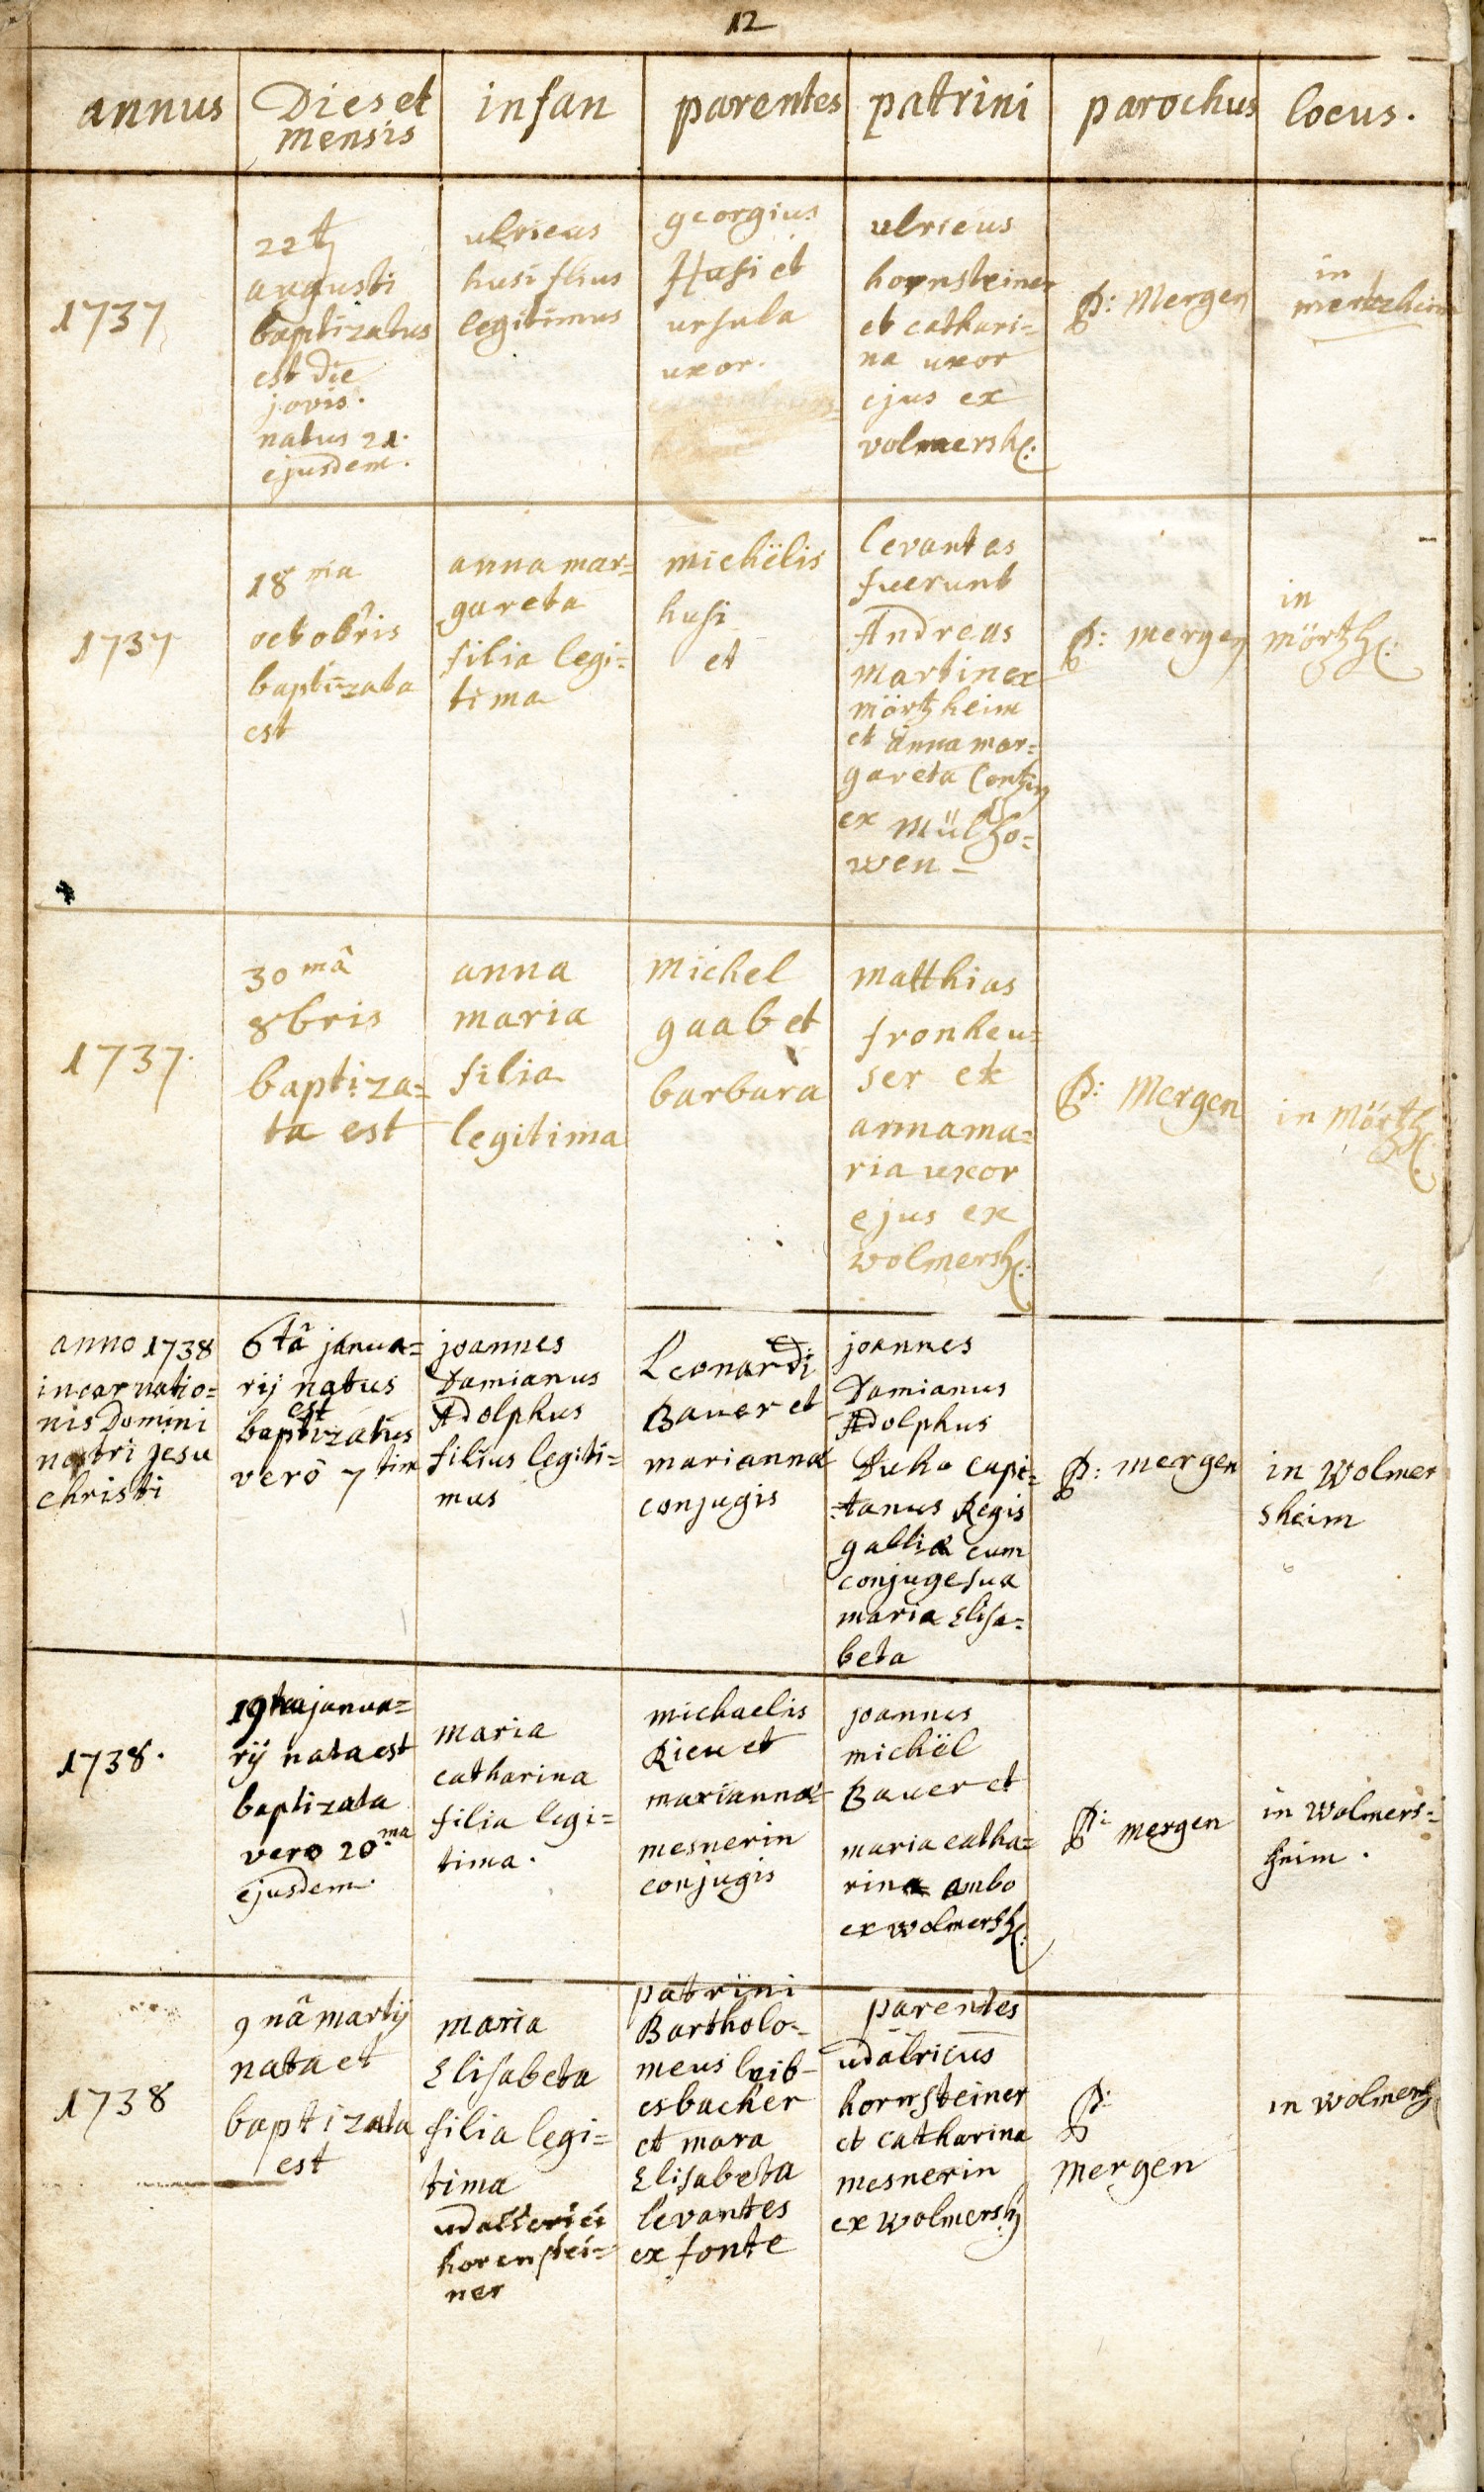 12
annus
Dies et
mensis
infan
parentes
patrini
parochus
locus.
1737
22tz
augusti
baptizatus
est die
jovis.
natus 21.
ejusdem.
ulricus
husi filius
legitimus
georgius
Husi et
ursula
uxor.
ulricus
hornsteiner
et cathari=
na uxor
ejus ex
volmersh:
P: Mergen
in
mertzheim
1737
18 ma
octobris
baptizata
est
anna mar=
gareta
filia legi=
tima
michëlis
husi
et
levantes
fuerunt
Andreas
martin ex
mörtzheim
et anna mar=
gareta
ex Mülho=
wen
P: mergen
in
mörtzh:
1737.
30 mâ
8bris
baptiza=
ta est
anna
maria
filia
legitima
Michel
gaab et
barbara
Matthias
fronheu=
ser et
annama=
ria uxor
ejus ex
wolmersh:
P: Mergen
in Mörtzh:
anno 1738
incarnatio=
nis Domini
nostri jesu
christi
6tâ janua=
rij natus
est
baptizatus
verò 7 tim
joannes
Damianus
Adolphus
filius legiti=
mus
Leonardi
Bauer et
mariannæ
conjugis
joannes
Damianus
Adolphus
capi=
=tanus Regis
galliæ cum
conjuge sua
maria Elisa=
beta
P: mergen
in Wolmer
sheim
1738.
19ta janua=
rij nata est
baptizata
vero 20 ma
ejusdem.
maria
catharina
filia legi=
tima.
michaelis
Rieu et
mariannæ
mesnerin
conjugis
joannes
michël
Bauer et
maria catha=
rina ambo
ex wolmersh:
P: mergen
in Wolmers=
heim.
1738
9nâ martij
nata et
baptizata
est
maria
Elisabeta
filia legi=
tima
udallerici
horenstei=
ner
patrini
Bartholo=
meus leib=
esbacher
et mara
Elisabeta
levantes
ex fonte
parentes
udalricus
hornsteiner
et catharina
mesnerin
ex wolmersh
P:
Mergen
in wolmersh